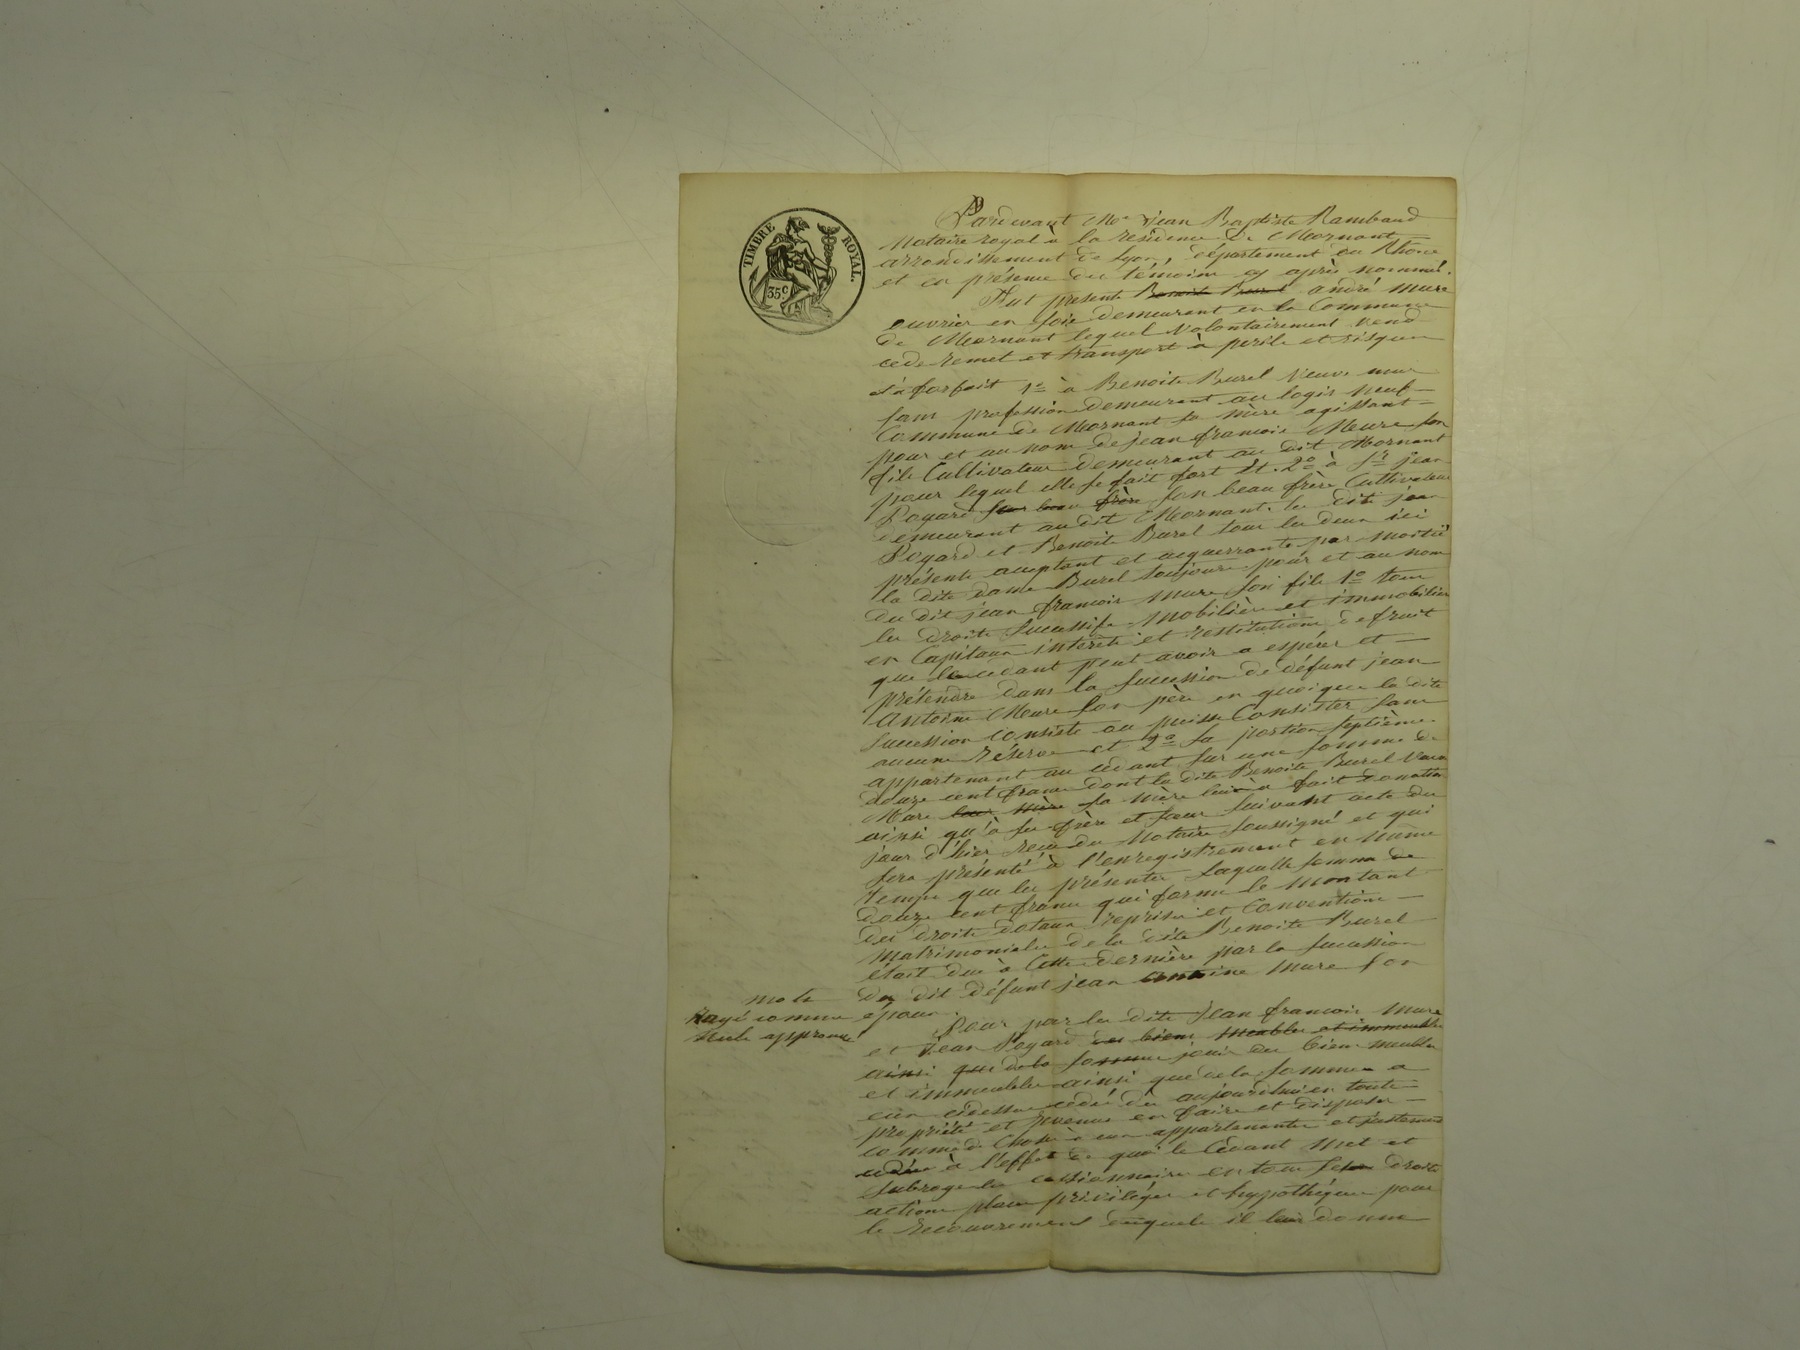 TIMBRE ROYAL.
35c
Pardevant Me Jean Baptiste Rambaud
Notaire royal à la résidence de Mornant
arrondissement de Lyon, département du Rhône
et en présence des témoins cy après nommés.
Fut présent Benoite Burel andré mure
ouvrier en soie demeurant en la Commune
de Mornant lequel volontairement vend
cede remet et transport à perils et risques
et à forfait 1o à Benoite Burel veuve mure
sans profession demeurant au logis neuf
Commune de Mornant sa mère agissant
pour et au nom de jean francois Mure son
fils Cultivateur demeurant au dit Mornant
pour lequel elle se fait fort Et. 2o à Sr jean
Pogard son beau frère son beau frère Cultivateur
demeurant audit Mornant. les dits jean
Pogard et Benoite Burel tous les deux ici
présents acceptant et acquerrants par moitié
la dite dame Burel toujours pour et au nom
du dit jean francois mure son fils 1o tous
les droits Successifs Mobiliers et immobiliers
en Capitaux intérêts et restitutions de fruit
que le cedant peut avoir a espérer et
prétendre dans la succession de défunt jean
Antoine Mure son père en quoique la dite
succession consiste ou puisse Consister sans
aucune réserve et 2o sa portion septième
appartenant au cédant sur une somme de
douze cent francs dont la dite Benoite Burel veuve
Mure leur mère sa mère lui a fait donation
ainsi qu'à ses frères et sœur suivant acte du
jour d'hier reçu du Notaire soussigné et qui
sera présenté à l'enregistrement en même
temps que les présentes Laquelle somme de
douze cent francs qui forme le montant
des droits dotaux reprises et Conventions
matrimoniales de la dite Benoite Burel
était due à Cette dernière par la succession
du dit défunt jean antoine mure son
époux.
mots
Rayé comme
nuls approuvé
Pour par les dits Jean francois mure
et Jean Pogard des biens meubles et immeubles
ainsi que de la somme jouir des biens meubles
et immeubles ainsi que de la somme a
eux cidessus cédés dès aujourdhui en toute
propriété et jouiance en faire et disposer
comme de Chose à eux appartenantes et justement
cédées à l'effet de quoi le Cédant met et
subroge les cessionnaires en tous ses droits
actions places privilèges et hypothèques pour
le recouvrement desquels il leur donne